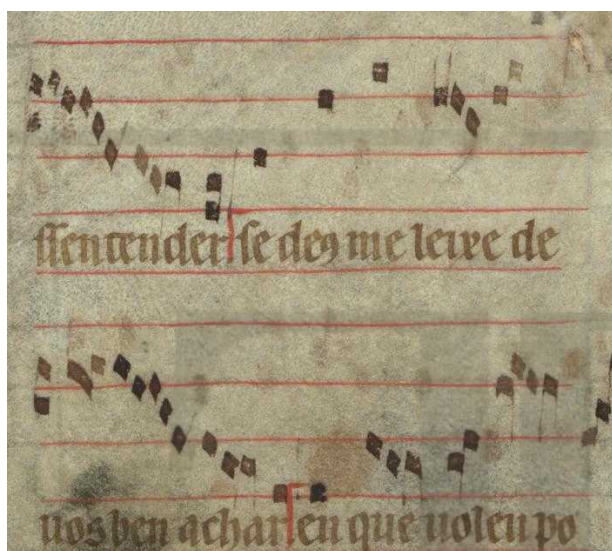 ssentender se de9 me leixe de
uos ben achar en que uoleu po